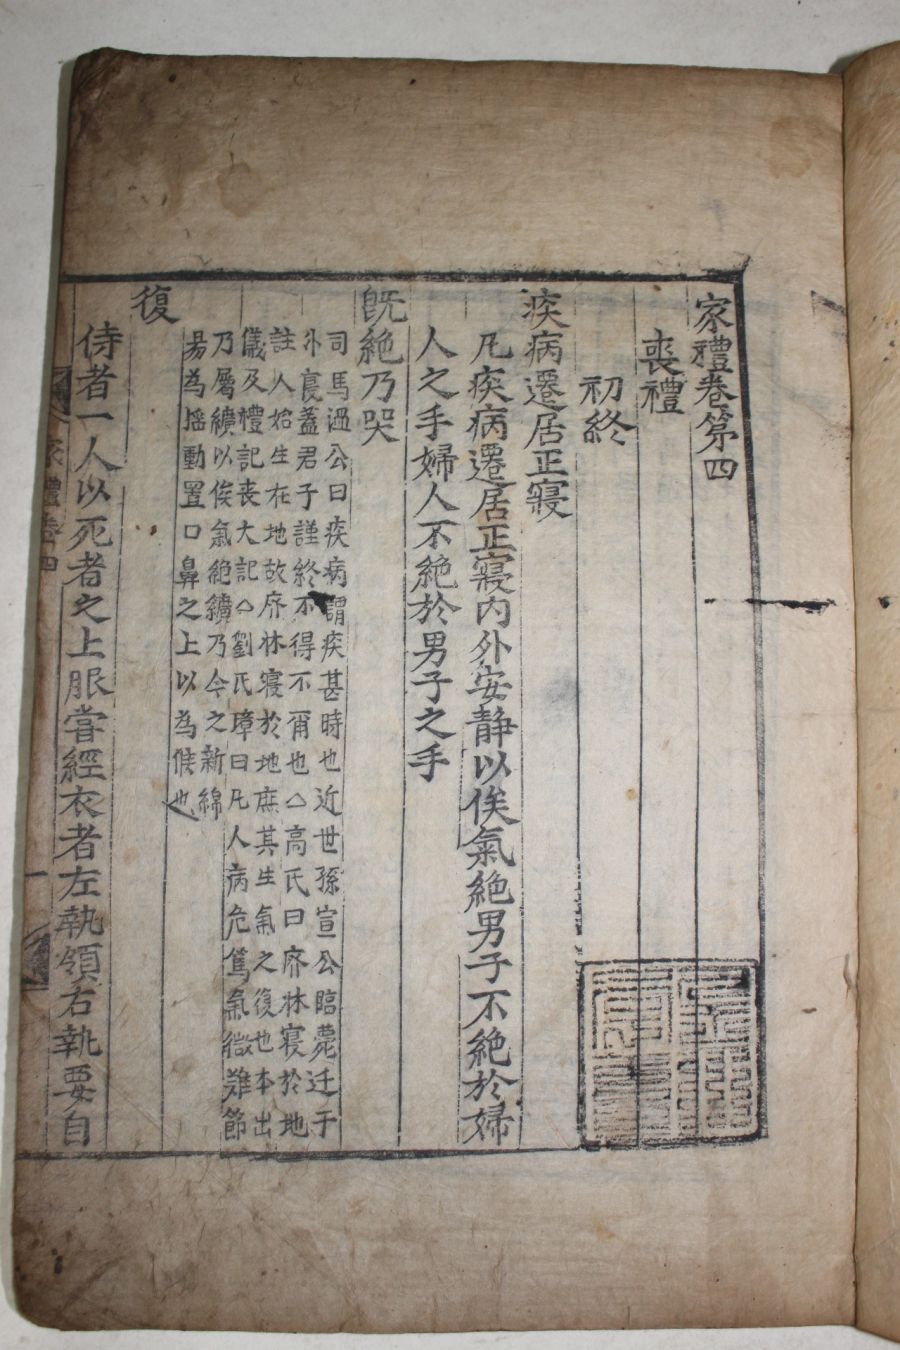 家禮卷第四
喪禮
初終
疾病遷居正寢
凡疾病遷居正寢內外安靜以俟氣絶男子不絶於婦
人之手婦人不絶於男子之手
旣絶乃哭
司馬溫公曰疾病謂疾甚時也近世孫宣公臨薨迁于
外寢蓋君子謹終不得不爾也△高氏曰廢牀寢於地
註人始生在地故廢牀寢於地庶其生氣之復也本出
儀及禮記喪大記△劉氏璋曰凡人病危篤氣微難節
乃屬纊以俟氣絶纊乃今之新綿
易為揺動置口鼻之上以為候也
復
侍者一人以死者之上服嘗經衣者左執領右執要自
家禮卷四